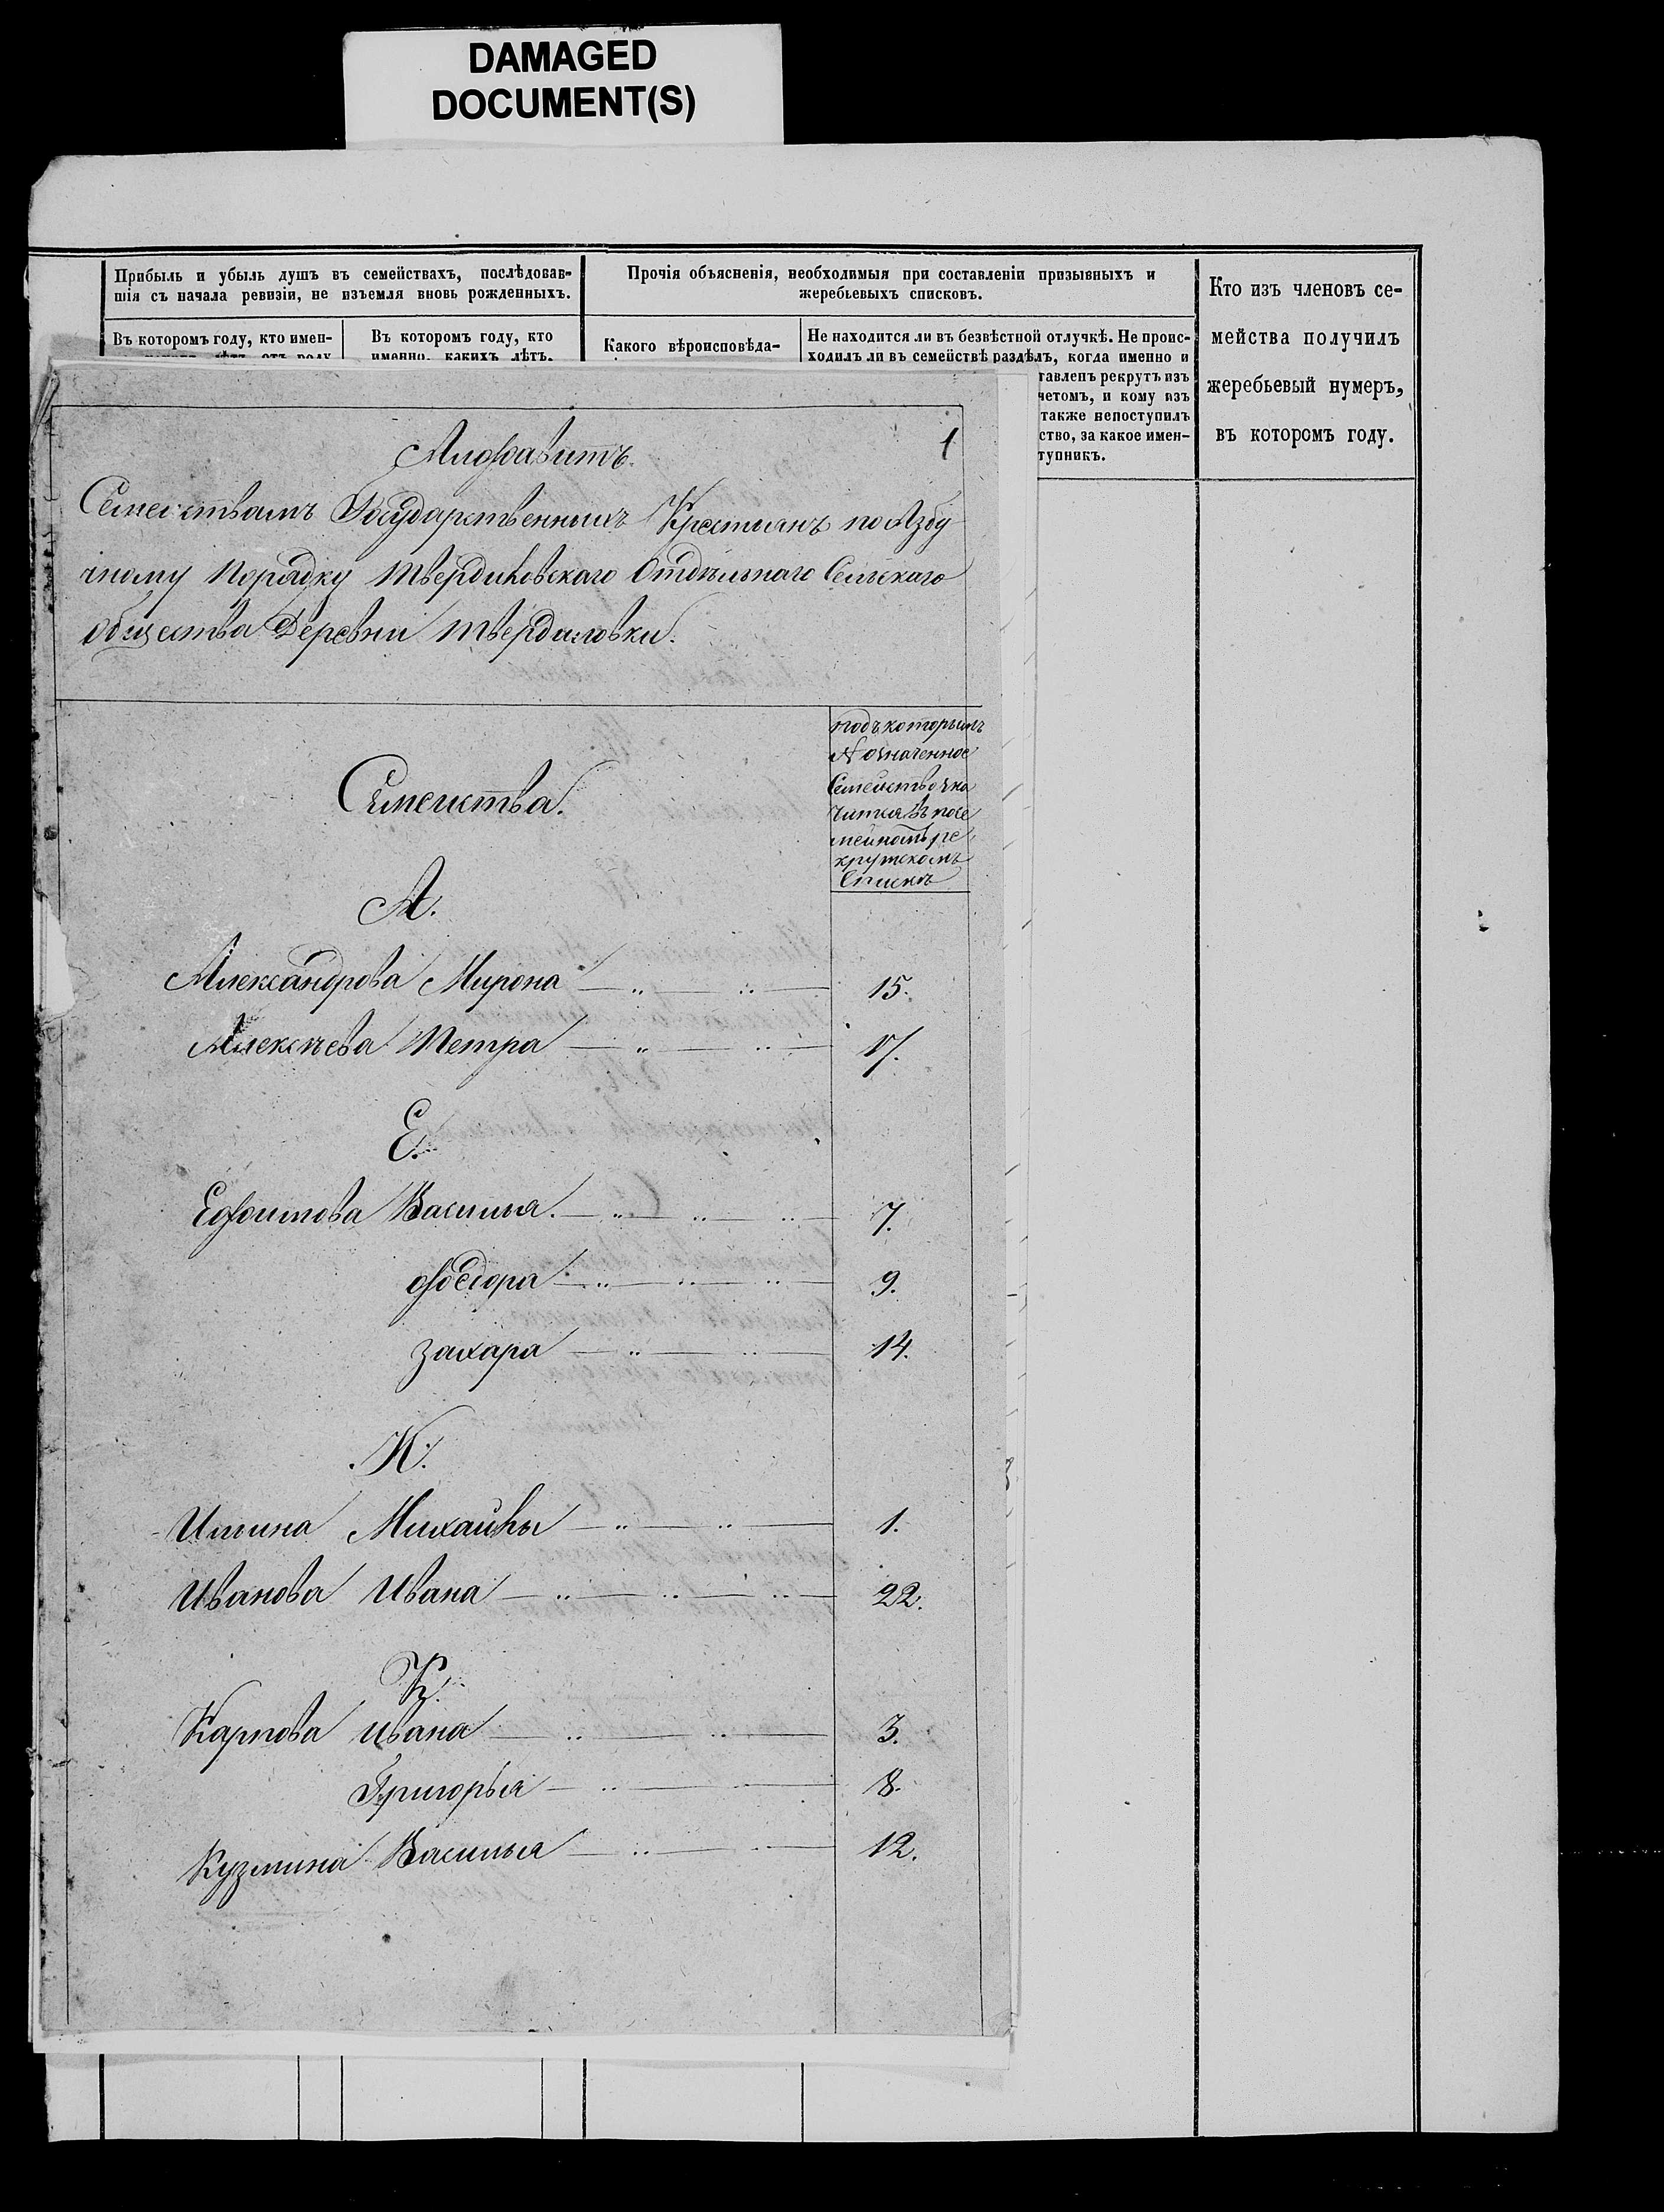 DAMAGED
DOCUMENT(S)
Прибыль и убыль душъ въ семействахъ, послѣдовав-
шія съ начала ревизіи, не изъемля вновь рожденныхъ.
Въ которомъ году, кто имен-
Въ которомъ году, кто
именно, какихъ лѣтъ,
Прочія объясненія, необходимыя при составленіи призывныхъ и
жеребьевыхъ списковъ.
Какого вѣроисповѣда-
Не находится ли въ безвѣстной отлучкѣ. Не проис-
ходилъ ли въ семействѣ раздѣлъ, когда именно и
тавленъ рекрутъ изъ
четомъ, и кому изъ
также непоступилъ
ство, за какое имен-
тупникъ.
Кто изъ членовъ се-
мейства получилъ
жеребьевый нумеръ,
въ которомъ году.
1
Алфавитъ
Семействамъ Государственныхъ Крестьянъ по Азбу
чному Порядку Твердиловскаго Отдѣльнаго Сельскаго
общества Деревни Твердиловки.
Семейства.
подъ которымъ
№ означенное
Семейство зна
чится въ посе
мейномъ ре
крутскомъ
Спискѣ
А.
Александрова Мирона 15.
Алексѣева Петра 17.
Е.
Ефимова Василья. 7.
Федора 9.
Захара 14.
И.
Ильина Михайлы 1.
Иванова Ивана 22.
К.
Карпова Ивана 3.
Григорья 8.
Кузмина Василья 12.